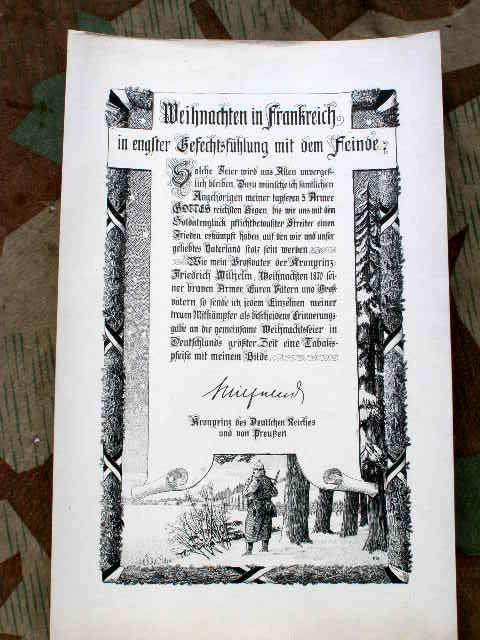 Weihnachten in Frankreich,
in engster Gefechtsfühlung mit dem Feinde.
Solche Feier wird uns Allen unvergeß-
lich bleiben. Dazu wünsche ich sämtlichen
Angehörigen meiner tapferen 5 Armee
GOTTES reichsten Segen, bis wir uns mit dem
Soldatenglück pflichtbewußter Streiter einen
Frieden erkämpft haben auf den wir und unser
geliebtes Vaterland stolz sein werden
Wie mein Großvater der Kronprinz
Friedrich Wilhelm, Weihnachten 1870 sei-
ner braven Armee, Euren Vätern und Groß-
vätern so sende ich jedem Einzelnen meiner
treuen Mitkämpfer als bescheidene Erinnerungs-
gabe an die gemeinsame Weihnachtsfeier in
Deutschlands größter Zeit eine Tabaks-
pfeife mit meinem Bilde.
Wilhelm
Kronprinz des Deutschen Reiches
und von Preußen